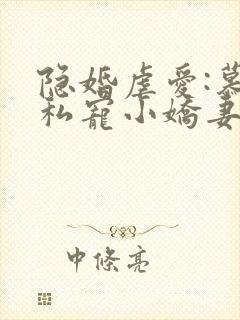 隐婚虐爱:慕
私宠小娇妻
中條亮